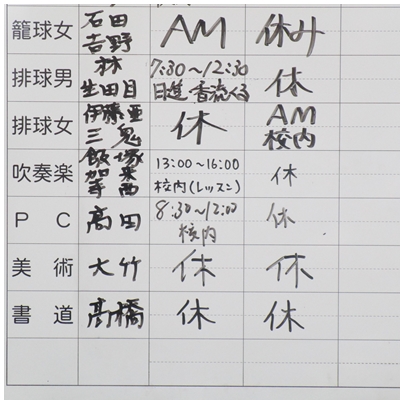 籠球女 石田 AM 休み
吉野
排球男 林 7:30～12:30 休
生田目
排球女 伊藤亜 休 AM
三鬼 校内
吹奏楽 飯塚 13:00～16:00 休
加来 校内(レッスン)
寺西
PC 高田 8:30～12:00 休
校内
美術 大竹 休 休
書道 髙橋 休 休